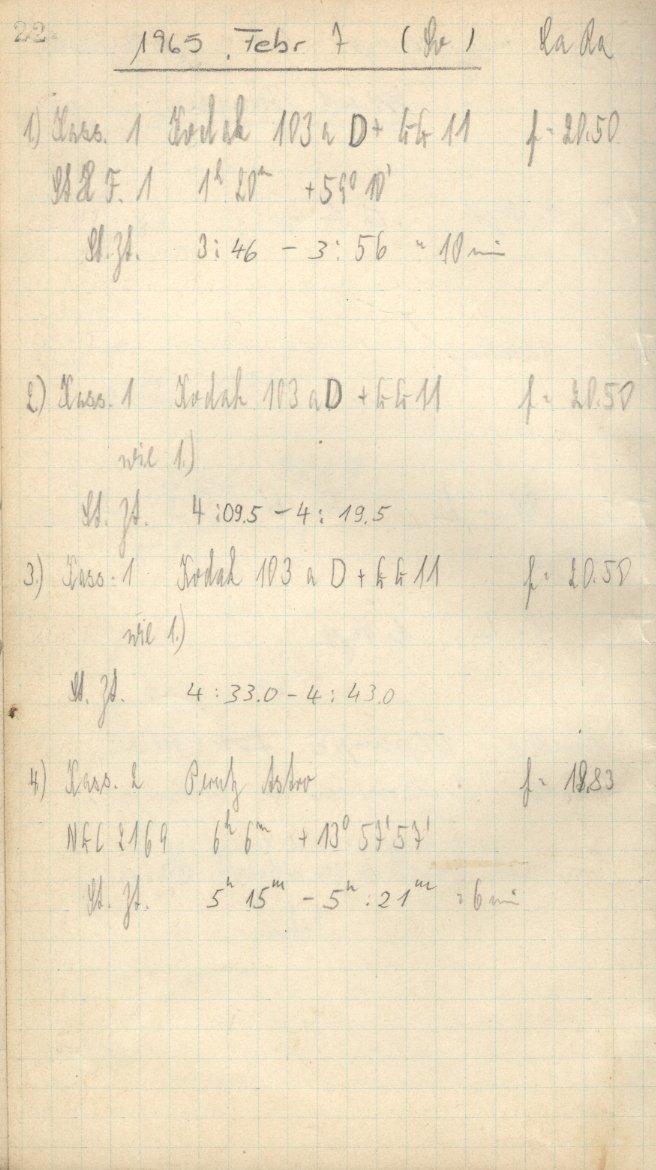 22.
1965. Febr 7 (So) La Ra
1) Kass. 1 Kodak 103 a D + GG 11 f = 20.50
F. 1 1h 20m +59° 10'
St. Zt. 3:46 – 3:56 = 10 min
2) Kass. 1 Kodak 103 a D + GG 11 f = 20.50
wie 1.)
St. Zt. 4:09.5 – 4:19.5
3.) Kass. 1 Kodak 103 a D + GG 11 f = 20.50
wie 1.)
St. Zt. 4:33.0 – 4:43.0
4) Kass. 2 Perutz Astro f = 18.83
NGC 2169 6h 6m +13° 57' 57'
St. Zt. 5h 15m – 5h : 21m = 6 min